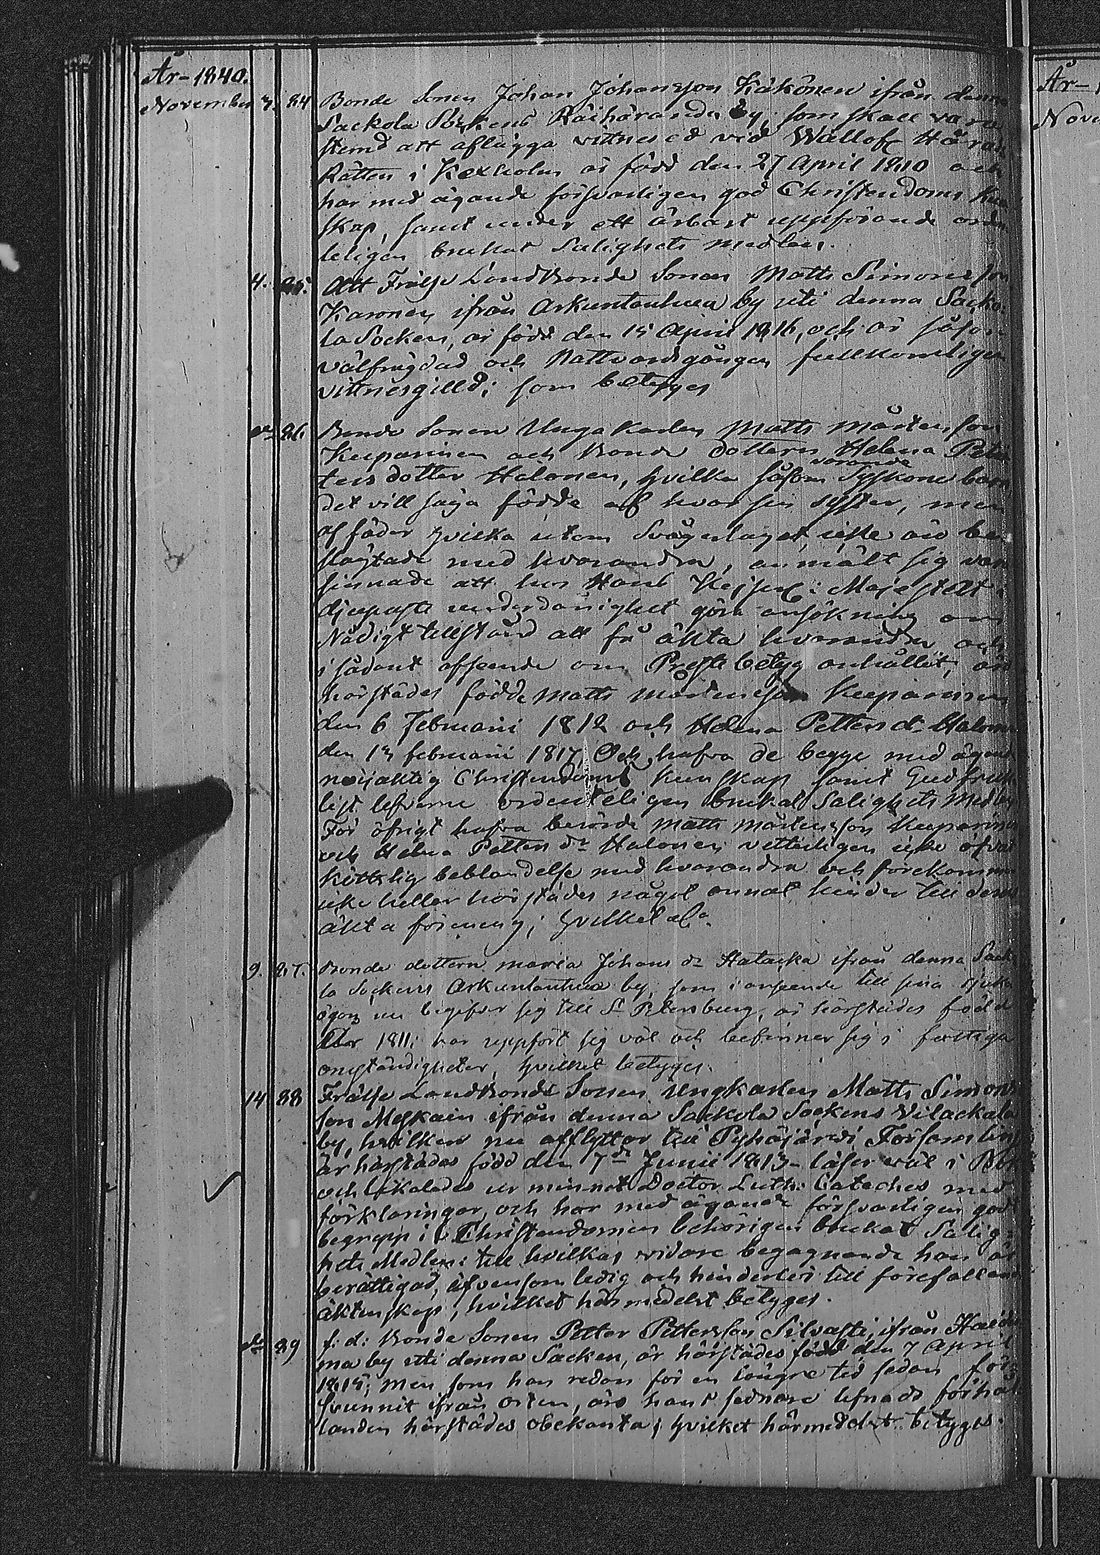 År 1840.
November 3. 84 Bonde Sonen Johan Johansson Käkönen ifrån denna
Sackola Sockens by, som skall vara
stemd att aflägga vittnesed vid Wallofe Härads
Rätten i Kexholm är född den 27 April 1810 och
har med ägande försvarligen god Christendoms Kun
skap, samt under ett ärbart uppförande orden
teligen brukat Salighets medlen.
4. 85. Att Frälse Landbonde Sonen Matts Simonsson
Karonen ifrån Arkuntanhua by uti denna Sacko
la Socken, är född den 15 April 1816, och är såsom
välfrägdad och Nattvardsgången fullkomligen
vittnesgilld; som betyges
do 86. Bonde Sonen Ungkarlen Matts Mårtensson
Keeparinen och Bonde dottern Helena Pet
ters dotter Halonen, hvilka såsom varande Syskone barn
det vill säga födde af hvar sin syster, men
af fäder hvilka utom Svågerlaget icke äro be
slägtade med hvarandra, anmält sig vara
sinnade att hos Hans Kejserl: Majestätt i
djupaste underdånighet göra ansökning om
Nådigt tillstånd att få äkta hvarandra och
i sådant afseende om Prestebetyg anhållit, äro
härstädes födde Matts Mårtensson Keeparinen
den 6 Februarii 1812 och Helena Petters dr Halonen
den 13 februarii 1817, Och hafva de begge med ägande
nöjaktig Christendoms kunskap samt Gudfruk
ligt lefverne ordenteligen brukat Salighets Medlen
För öfrigt hafva berörde Matts Mårtensson Keeparinen
och Helena Petters dr Halonen vetterligen icke öfvat
köttslig beblandelse med hvarandra och förekommer
icke heller härstädes något annat hinder till deras
äkta förening; hvilket &c.
9. 87. Bonde dottern Maria Johans dr Hatacka ifrån denna Sacko
la Sockens Arkuntanhua by, som i anseende till sina sjuka
ögon nu begifver sig till St Petersburg, är härstädes född
1811: har uppfört sig väl och befinner sig i fattiga
omständigheter, hvilket betyges.
14 88 Frälse Landbonde Sonen Ungkarlen Matts Simons
son Mykäin ifrån denna Sackola Sockens Vilackala
by, hvilken nu afflyttar till Pyhäjärvi Församling
är härstädes född den 7de Junii 1813 läser väl i Bok
och likaledes ur minnet Doctor Luth: Cateches med
förklaringar, och har med ägande försvarligen god
begrepp i Christendomen behörigen brukat Salig
hets Medlen: till hvilkas vidare begagnande han är
berättigad, äfvensom ledig och hinderlös till förefallande
äktenskap, hvilket härmedelst betyges.
do 89 f. d: Bonde Sonen Petter Pettersson Silvasti, ifrån
ma by uti denna Socken, är härstädes född den 7 April
1815; men som han redan för en längre tid sedan för
svunnit ifrån orten, äro hans sednare lefnads förhål
landen härstädes obekanta; hvilket härmedelst betyges.
År
Nove